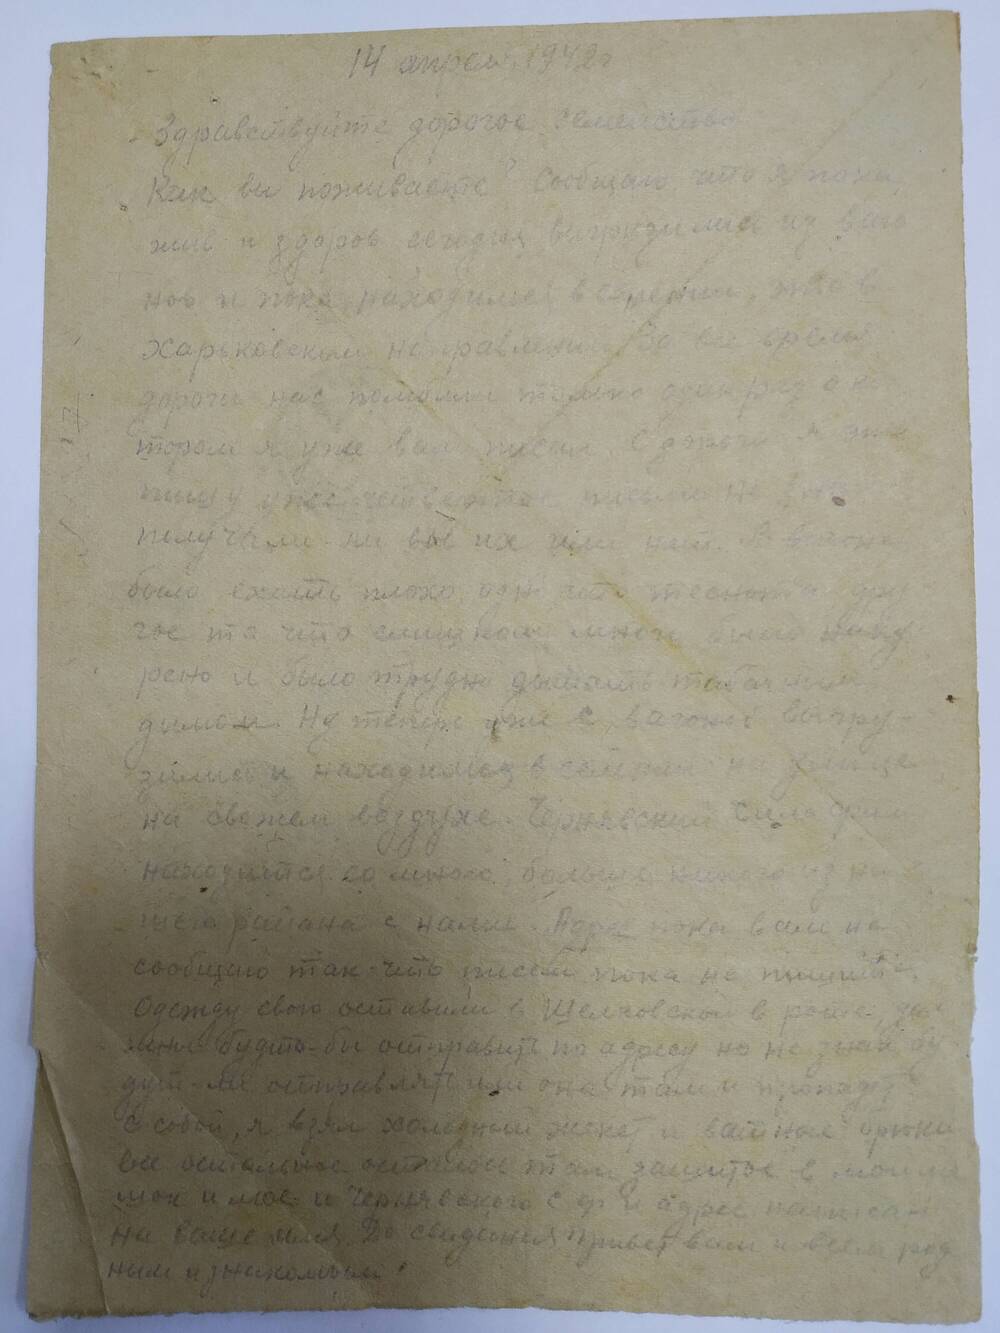 14 апреля 1942г
Здравствуйте дорогое семейство
Как вы поживаете? Сообщаю что я пока
жив и здоров сегодня выгрузились из ваго
нов и пока находимся в это в
Харьковском направлении. За все время
дороги нас только один раз о ко
тором я уже вам писал. С дороги я
пишу уже четвертое письмо не
получили ли вы их или нит. В вагоне
было ехать плохо одно что теснота дру
гое то что слишком много было наку
рено и было трудно дышать табачным
дымом. Ну теперь уже с вагонов выгру-
зились и находимся в на улице
на свежем воздухе. Чернявский
находится со мною, больше никого из на
шего района с нами. Адрес пока вам не
сообщаю так что писем пока не пишите.
Одежду свою оставили в Щелковской в роте,
будто-бы отправить по адресу но не знай бу
дут-ли отправлять или она там и пропадет
с собой, я взял холодный жекет и ватные брюки
все остальное осталось там зашитое в
мое и Чернявского С ф и адрес написан
на ваше имя. До свидания привет вам и всем род
ным и знакомым.